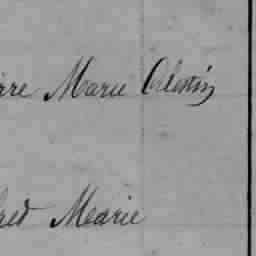 rre Marie Célestin
red Marie